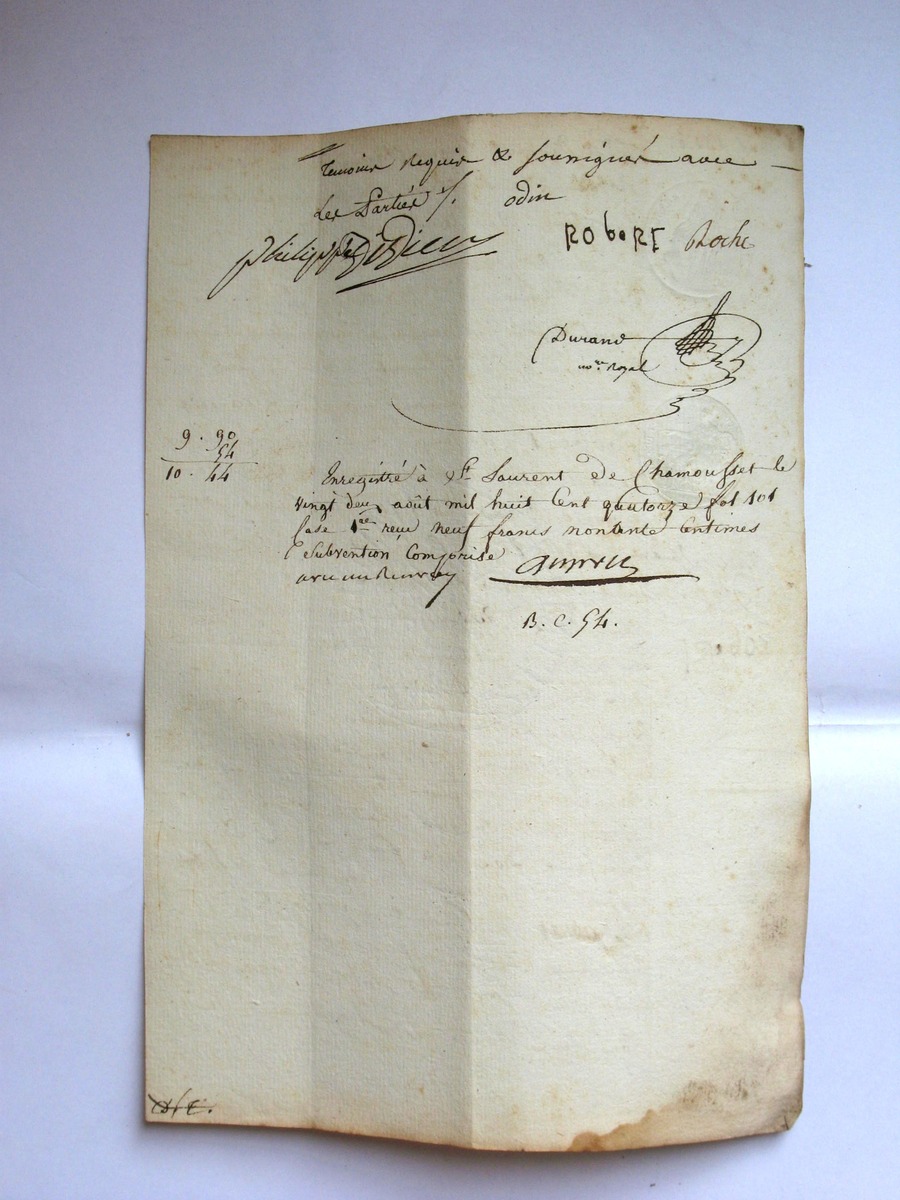 temoins Requis & soussignés avec
les Parties /. odin
philippe ROBERT Roche
Durand
no.re Royal
9 . 90
54
10 . 44
Enregistré à St Laurent de Chamousset le
vingt deux août mil huit Cent quatorze fol 101
Case 1re reçu neuf francs nonante Centimes
Subvention Comprise
B. C. 54.